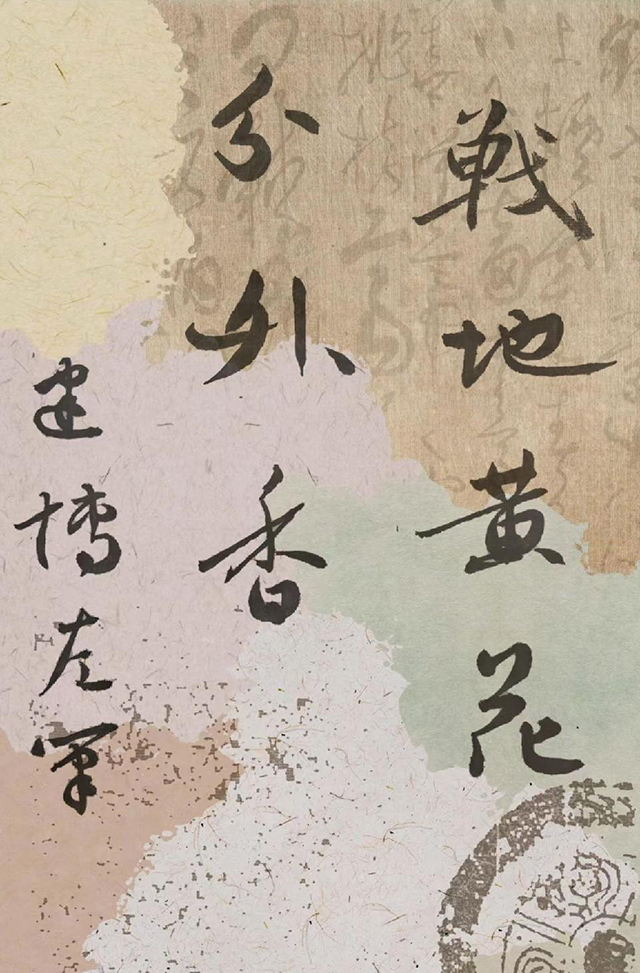 戦地黄花
分外香
建博左筆